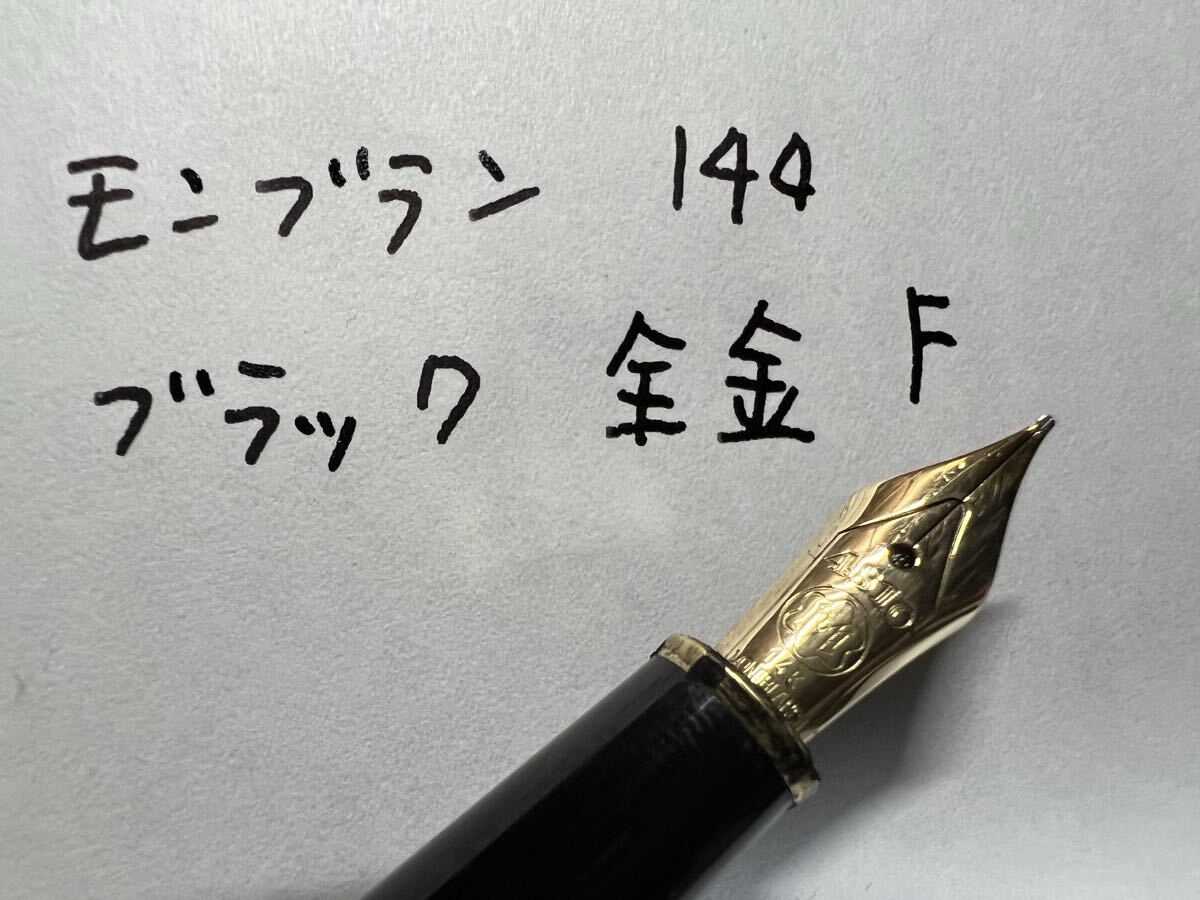 モンブラン 144
ブラック 全金 F
4810
14K
MONTBLANC